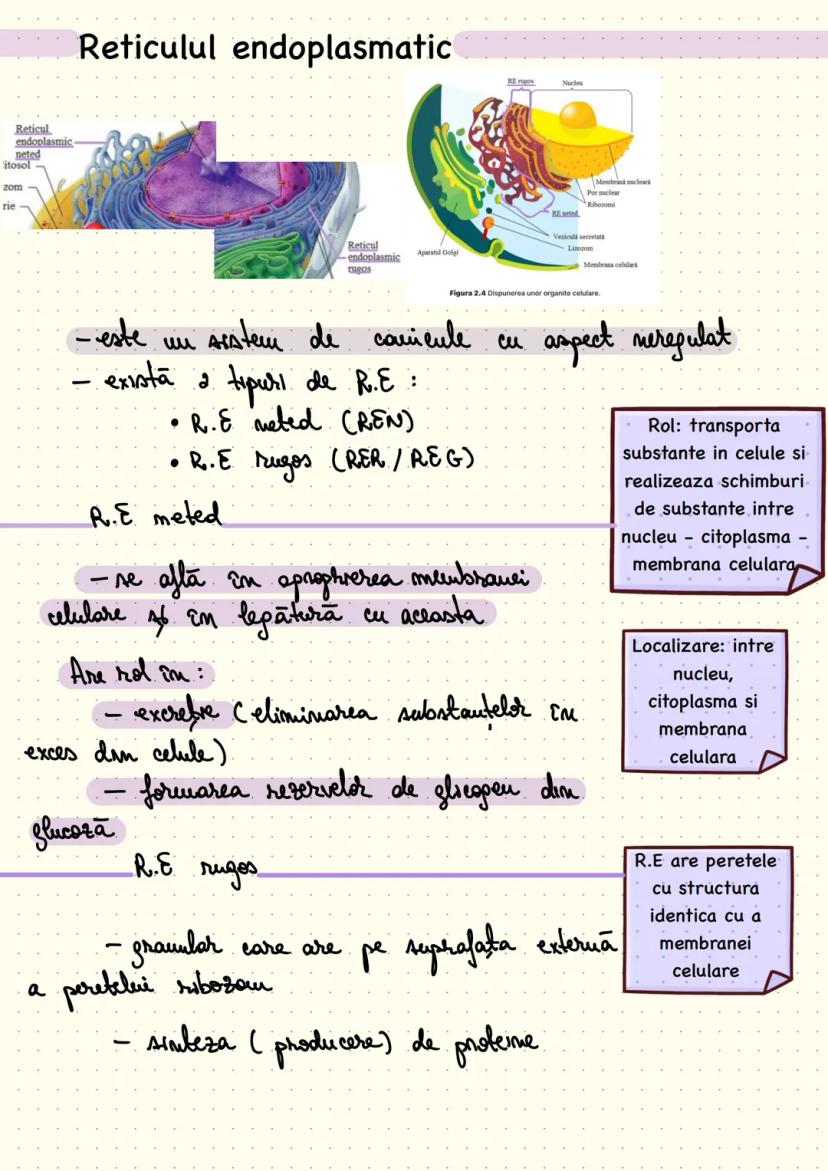 Reticulul endoplasmatic
Reticul
endoplasmic
neted
itosol
zom
rie
Reticul
endoplasmic
rugos
RE rugos
Nucleu
Membrană nucleară
Por nuclear
Ribozomi
RE neted
Veziculă secretată
Lizozom
Aparatul Golgi
Membrana celulară
Figura 2.4 Dispunerea unor organite celulare.
- este un sistem de canicule cu aspect neregulat
- există 2 tipuri de R.E :
• R.E neted (REN)
• R.E rugos (RER / REG)
Rol: transporta
substante in celule si
realizeaza schimburi
de substante intre
nucleu - citoplasma -
membrana celulara
R.E neted
- se află în apropierea membranei
celulare și în legătură cu aceasta
Localizare: intre
nucleu,
citoplasma si
membrana
celulara
Are rol în :
- excreție (eliminarea substanțelor în
exces din celule)
- formarea rezervelor de glicogen din
glucoză
R.E rugos
R.E are peretele
cu structura
identica cu a
membranei
celulare
- granular care are pe suprafața externă
a peretelui ribozom
- sinteza (producere) de proteine